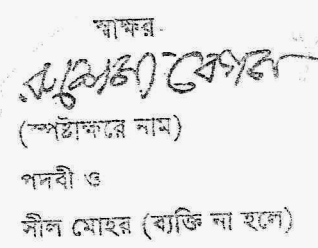 স্বাক্ষর
বেগম
(স্পষ্টাক্ষরে নাম)
পদবী ও
সীল মোহর (ব্যক্তি না হলে)